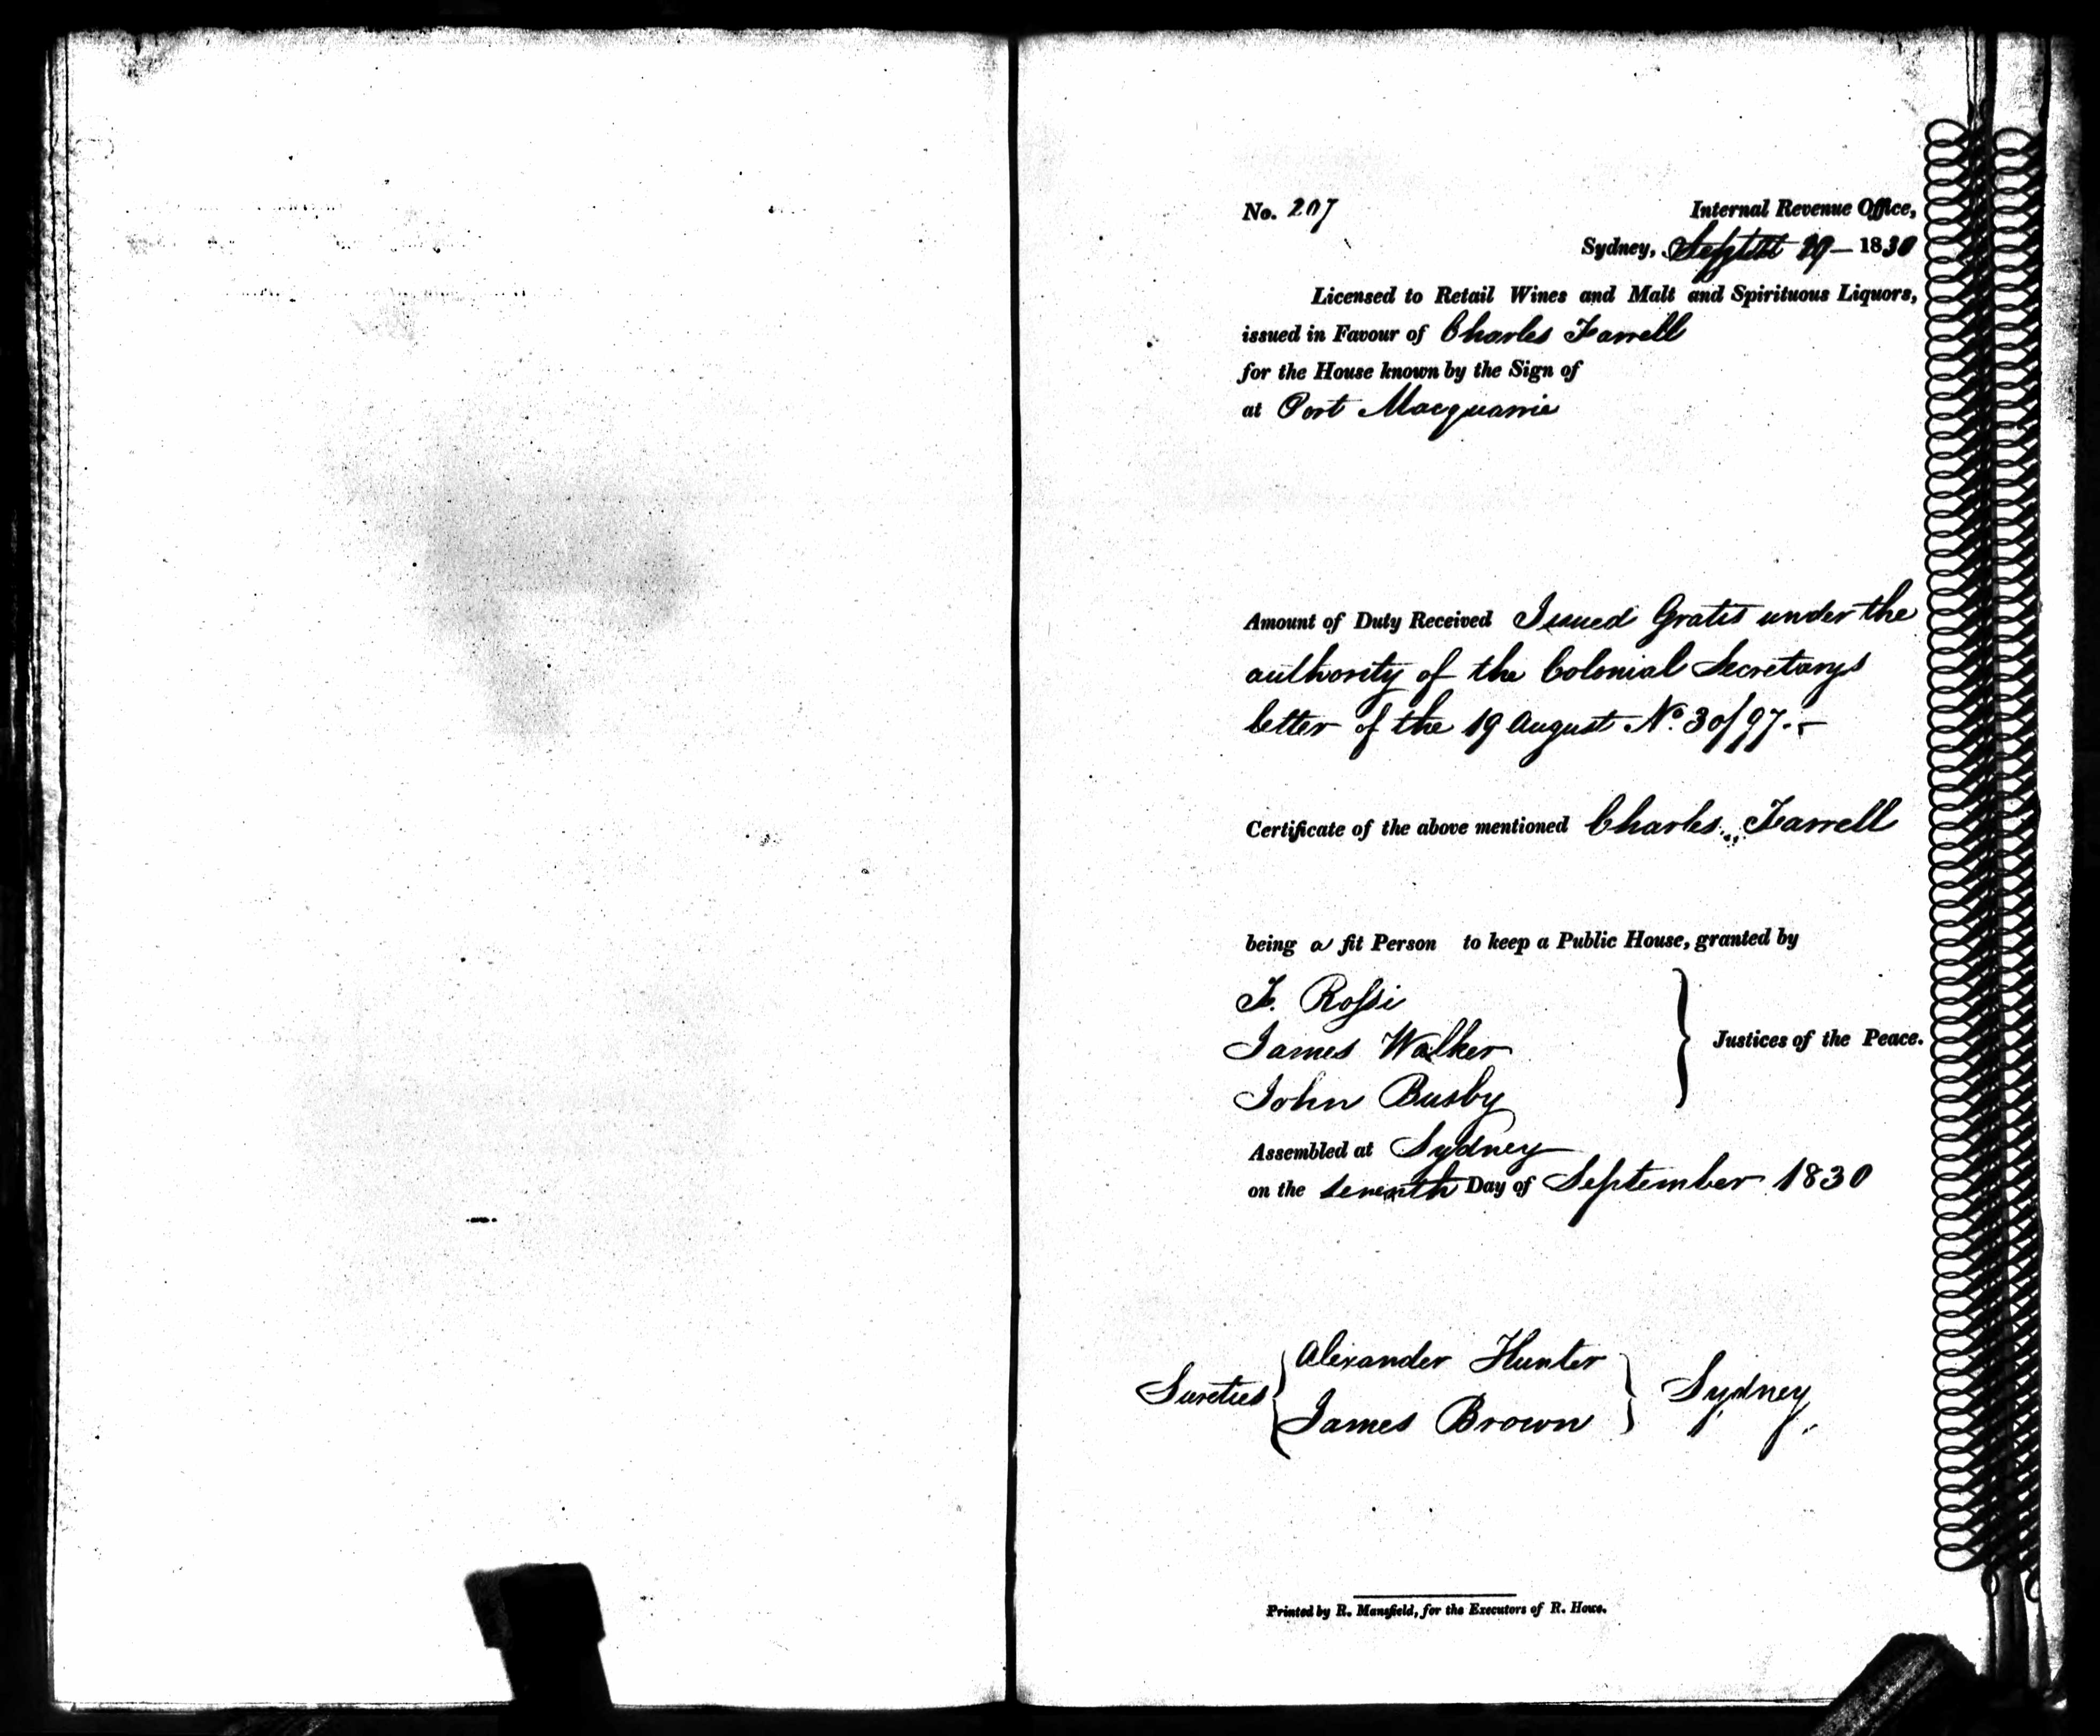 No. 207
Internal Revenue Office,
Sydney, 29 — 1830
Licensed to Retail Wines and Malt and Spirituous Liquors,
issued in Favour of Charles Farrell
for the House known by the Sign of
at Port Macquarie
Amount of Duty Received Issued Gratis under the
authority of the Colonial Secretarys
letter of the 19 August No. 30/97.-
Certificate of the above mentioned Charles Farrell
being a fit Person to keep a Public House, granted by
F. Rossi
James Walker
John Busby
Justices of the Peace.
Assembled at Sydney
on the seventh Day of September 1830
Sureties
Alexander Hunter
James Brown
Sydney
Printed by R. Mansfield, for the Executors of R. Howe.